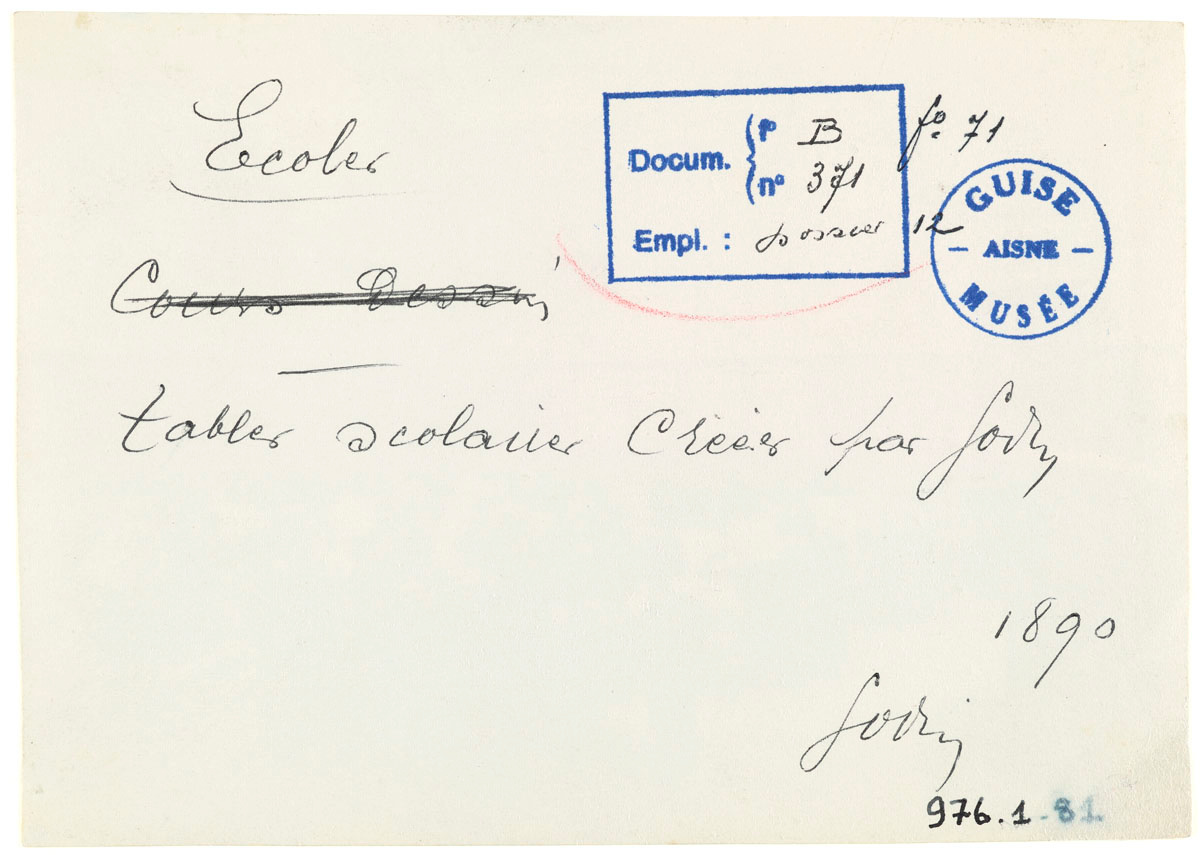 Ecoles
Docum. { fº B fº 71
nº 371
Empl. : dossier 12
GUISE
- AISNE -
MUSÉE
Cours Dessin
tables scolaires Créées par Godin
1890
Godin
976.1.81.